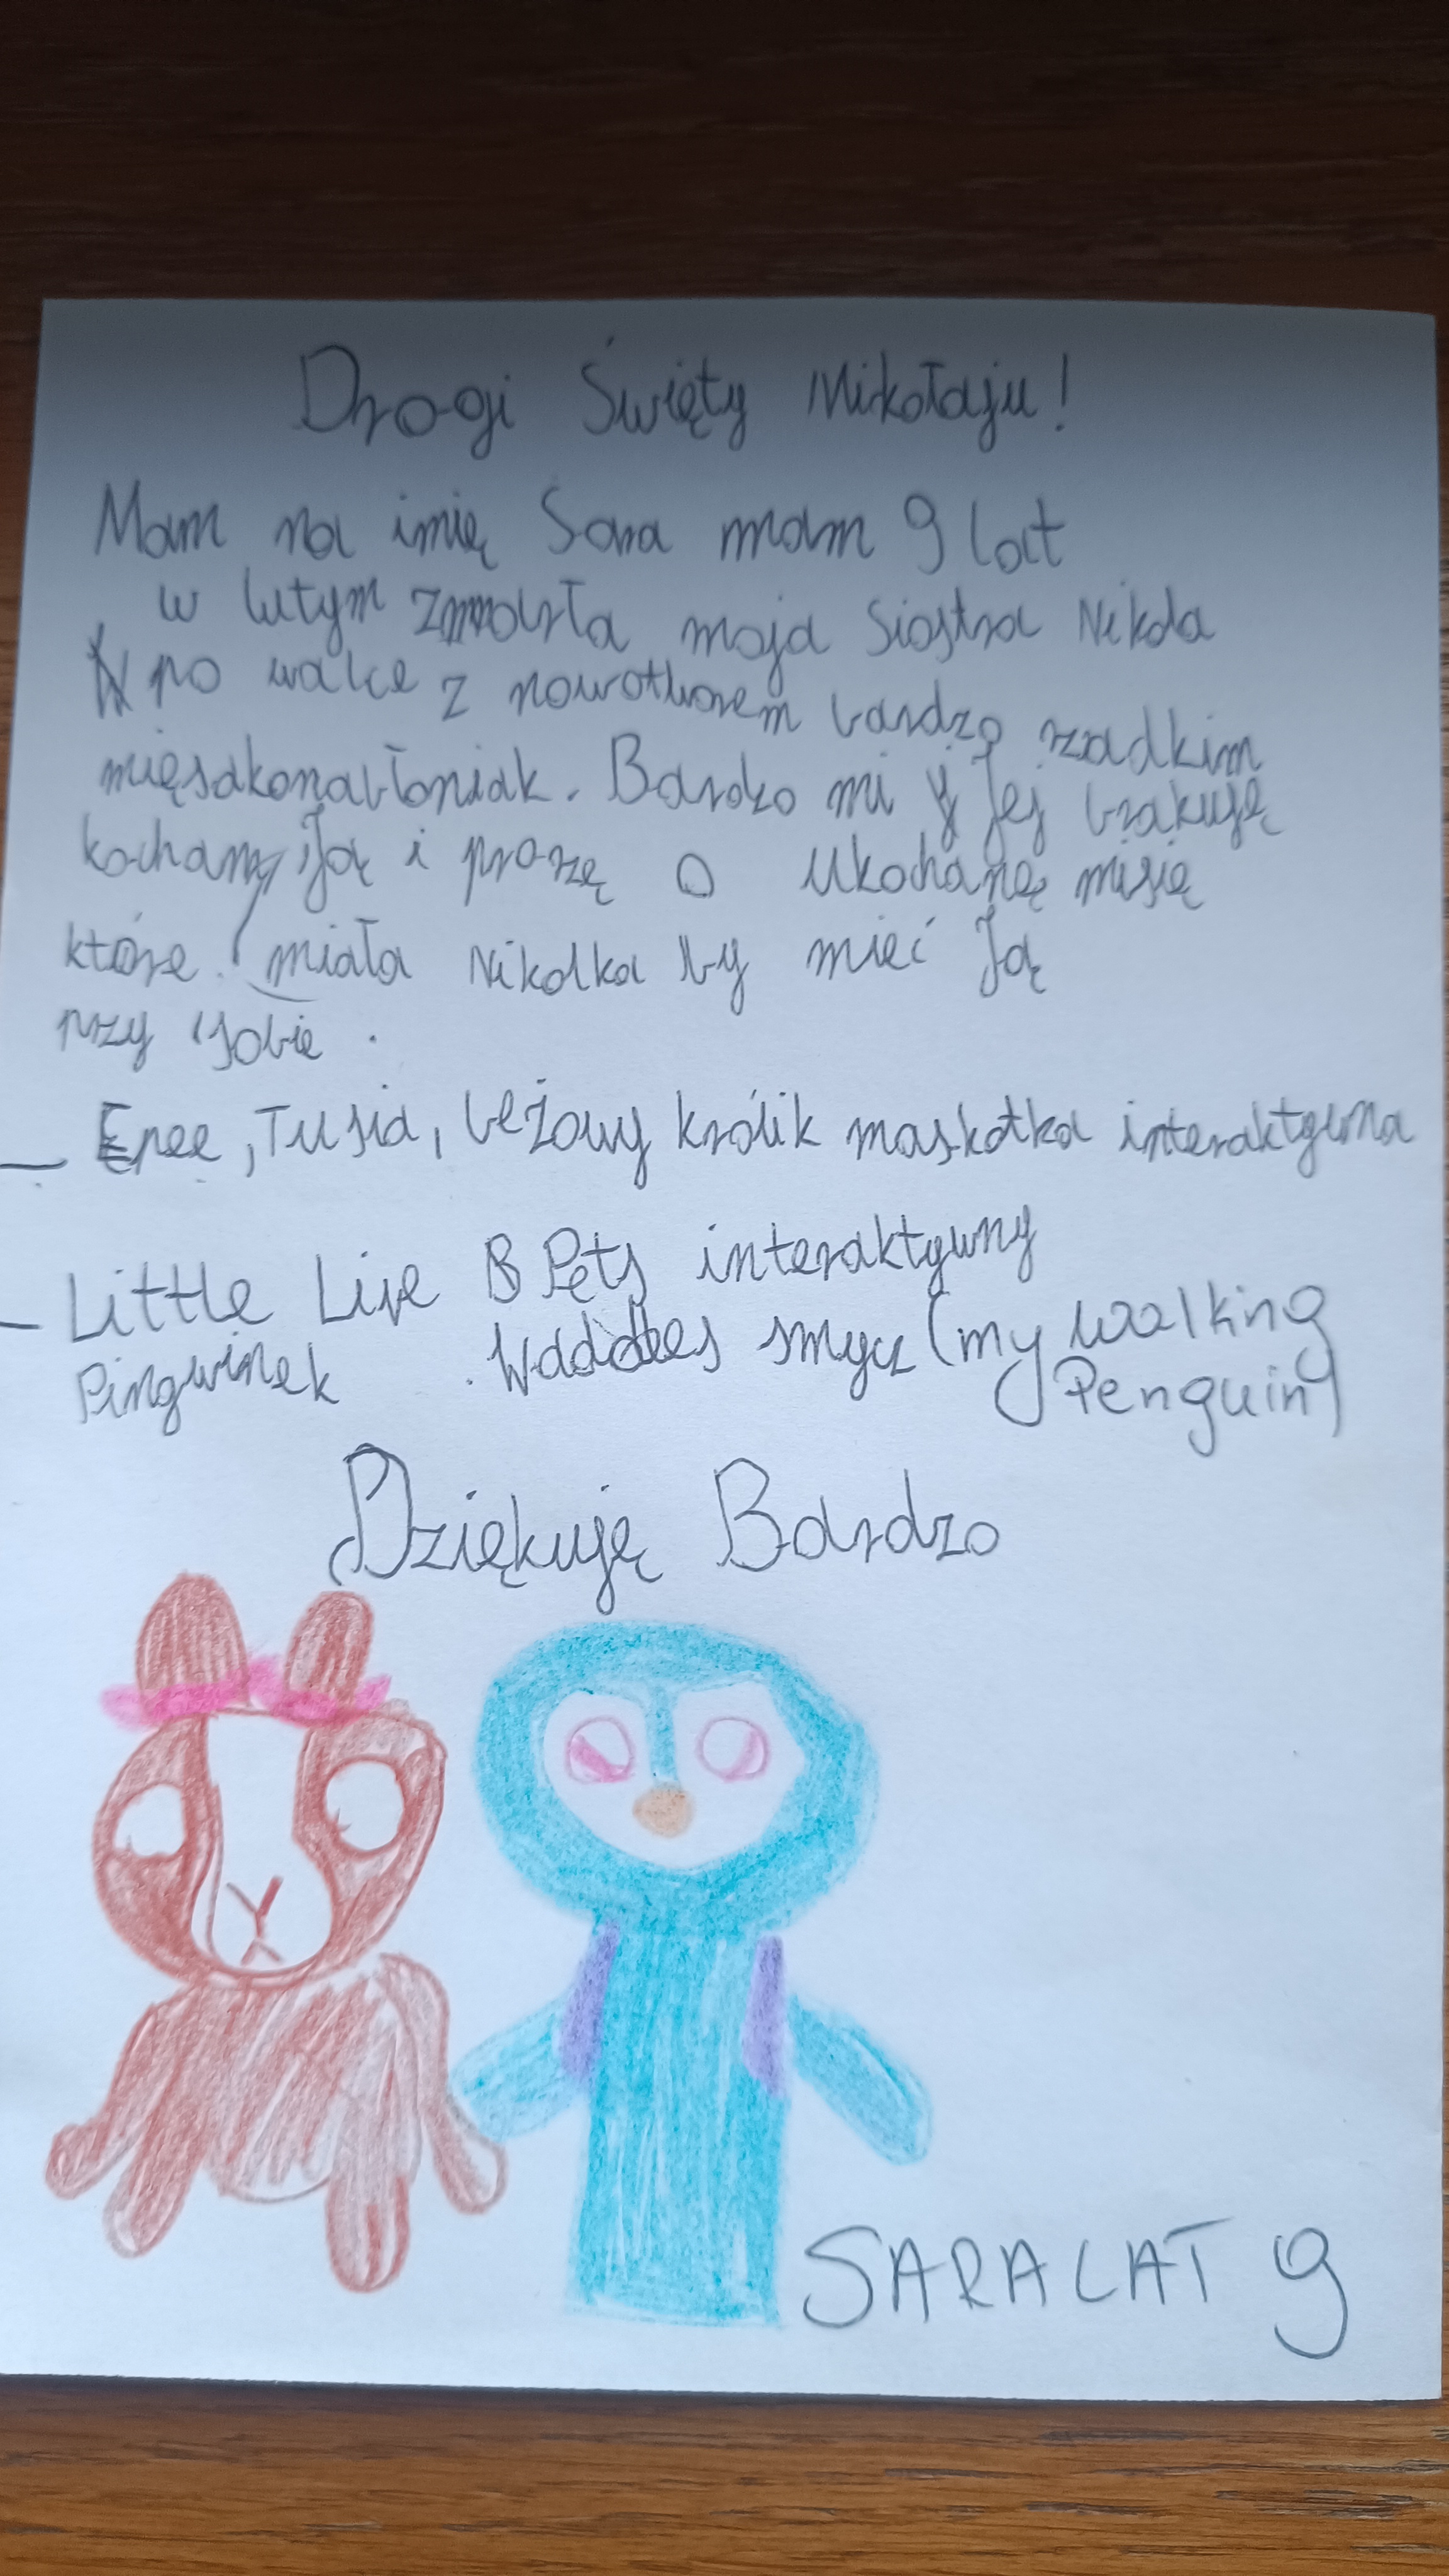 Drogi Święty Mikołaju!
Mam na imię Sara mam 9 lat
w lutym zmarła moja siostra Nikola
po walce z nowotworem bardzo rzadkim
mięsakonabłoniak. Bardzo mi Jej brakuję
kochamy Ją i proszę o ukochanę misię
które miała Nikolka by mieć Ją
przy sobie.
- Epee, Tusia, beżowy królik maskotka interaktywna
- Little Live Pets interaktywny
Pingwinek Waddles smycz (my walking
Penguin)
Dziękuję Bardzo
SARA LAT 9